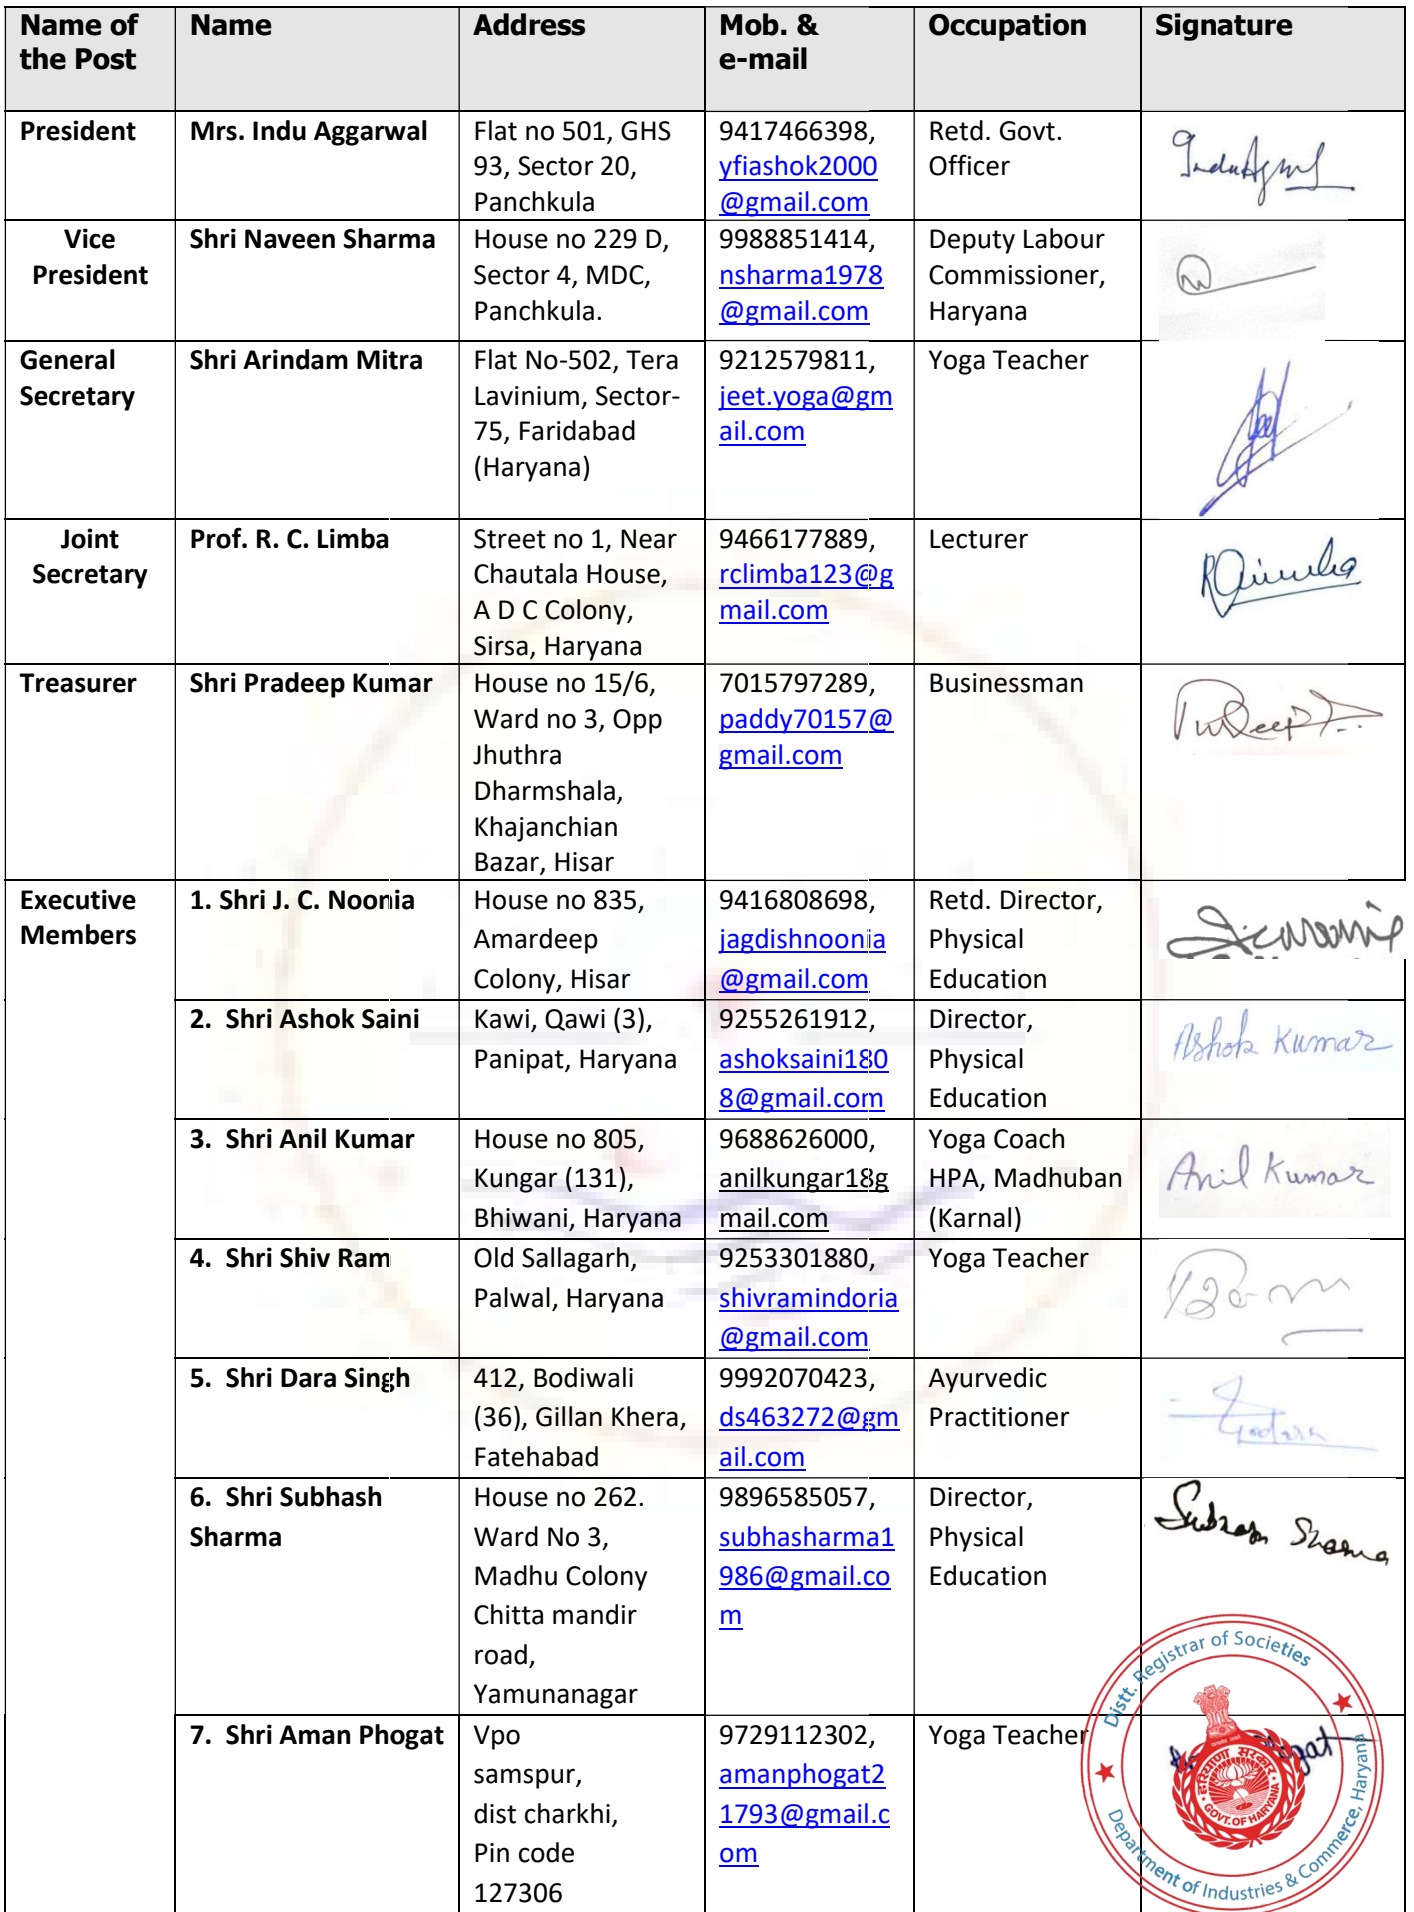 Name of
the Post
Name
Address
Mob. &
e-mail
Occupation
Signature
President
Mrs. Indu Aggarwal
Flat no 501, GHS
93, Sector 20,
Panchkula
9417466398,
yfiashok2000
@gmail.com
Retd. Govt.
Officer
Vice
President
Shri Naveen Sharma
House no 229 D,
Sector 4, MDC,
Panchkula.
9988851414,
nsharma1978
@gmail.com
Deputy Labour
Commissioner,
Haryana
General
Secretary
Shri Arindam Mitra
Flat No-502, Tera
Lavinium, Sector-
75, Faridabad
(Haryana)
9212579811,
jeet.yoga@gm
ail.com
Yoga Teacher
Joint
Secretary
Prof. R. C. Limba
Street no 1, Near
Chautala House,
A D C Colony,
Sirsa, Haryana
9466177889,
rclimba123@g
mail.com
Lecturer
Treasurer
Shri Pradeep Kumar
House no 15/6,
Ward no 3, Opp
Jhuthra
Dharmshala,
Khajanchian
Bazar, Hisar
7015797289,
paddy70157@
gmail.com
Businessman
Executive
Members
1. Shri J. C. Noonia
House no 835,
Amardeep
Colony, Hisar
9416808698,
jagdishnoonia
@gmail.com
Retd. Director,
Physical
Education
2. Shri Ashok Saini
Kawi, Qawi (3),
Panipat, Haryana
9255261912,
ashoksaini180
8@gmail.com
Director,
Physical
Education
Ashok Kumar
3. Shri Anil Kumar
House no 805,
Kungar (131),
Bhiwani, Haryana
9688626000,
anilkungar18g
mail.com
Yoga Coach
HPA, Madhuban
(Karnal)
Anil Kumar
4. Shri Shiv Ram
Old Sallagarh,
Palwal, Haryana
9253301880,
shivramindoria
@gmail.com
Yoga Teacher
5. Shri Dara Singh
412, Bodiwali
(36), Gillan Khera,
Fatehabad
9992070423,
ds463272@gm
ail.com
Ayurvedic
Practitioner
6. Shri Subhash
Sharma
House no 262.
Ward No 3,
Madhu Colony
Chitta mandir
road,
Yamunanagar
9896585057,
subhasharma1
986@gmail.co
m
Director,
Physical
Education
Subhash Sharma
7. Shri Aman Phogat
Vpo
samspur,
dist charkhi,
Pin code
127306
9729112302,
amanphogat2
1793@gmail.c
om
Yoga Teacher
Distt. Registrar of Societies
Department of Industries & Commerce, Haryana
हरियाणा सरकार
GOVT. OF HARYANA